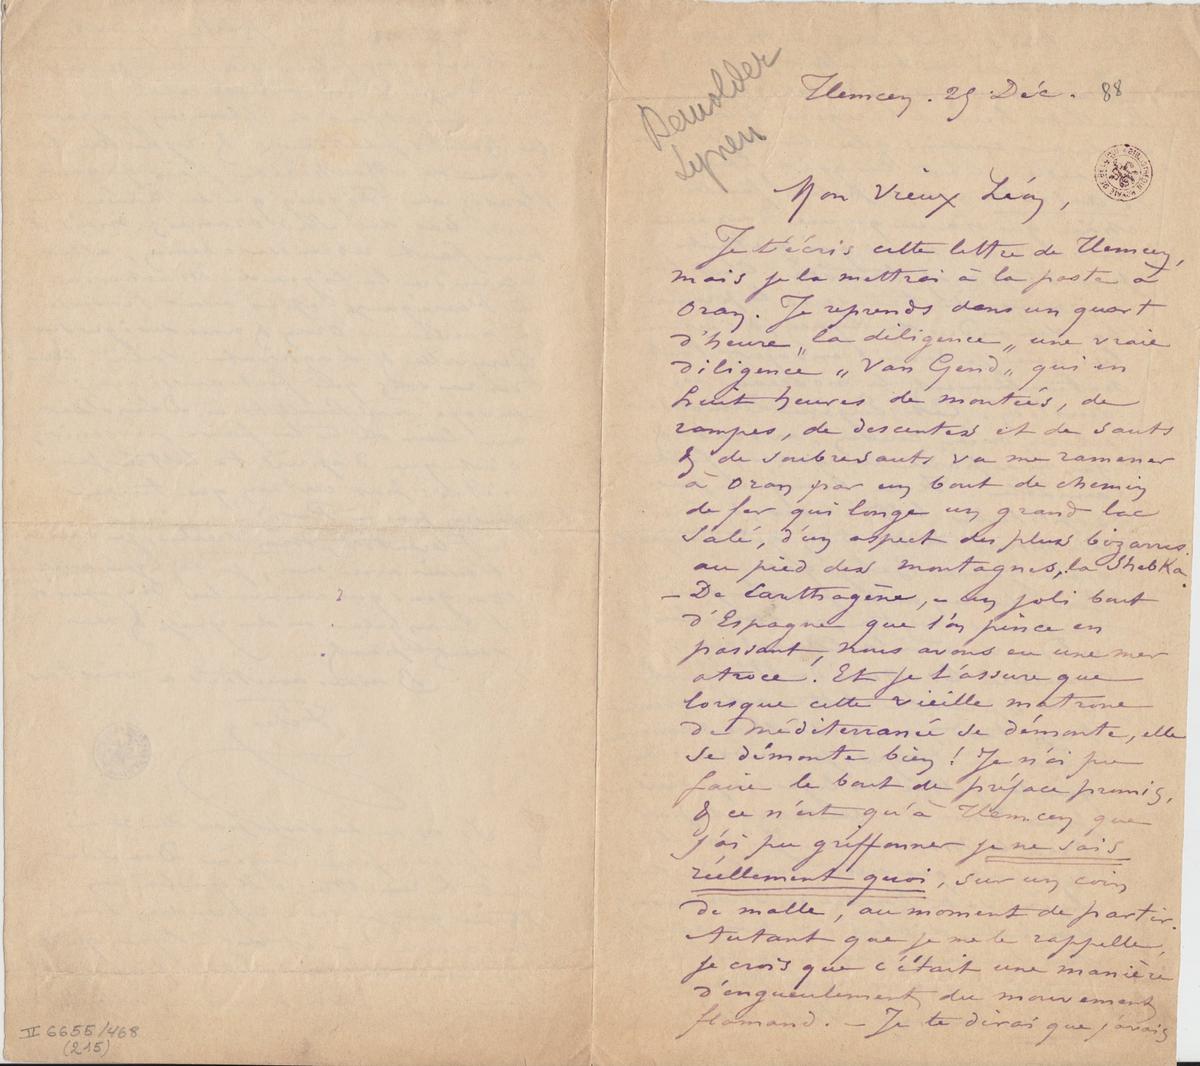 Demolder
Lynen
Tlemcen. 25 Déc. 88
Mon Vieux Léon,
Je t'écris cette lettre de Tlemcen,
mais je la mettrai à la poste à
Oran. Je reprends dans un quart
d'heure „la diligence„ une vraie
diligence „Van Gend„ qui en
huit heures de montées, de
rampes, de descentes et de sauts
& de soubresauts va me ramener
à Oran par un bout de chemin
de fer qui longe un grand lac
salé, d'un aspect des plus bizarres
au pied des montagnes, la Shebka.
– De Carthagène, – un joli bout
d'Espagne que l'on pince en
passant, nous avons eu une mer
atroce. Et je t'assure que
lorsque cette vieille matrone
de méditerranée se démonte, elle
se démonte bien! Je n'ai pu
faire le bout de préface promis,
& ce n'est qu'à Tlemcen que
j'ai pu griffonner je ne sais
réellement quoi, sur un coin
de malle, au moment de partir.
Autant que je me le rappelle,
je crois que c'était une manière
d'engueulement du mouvement
flamand. – Je te dirai que j'avais
II 6655/468
(215)